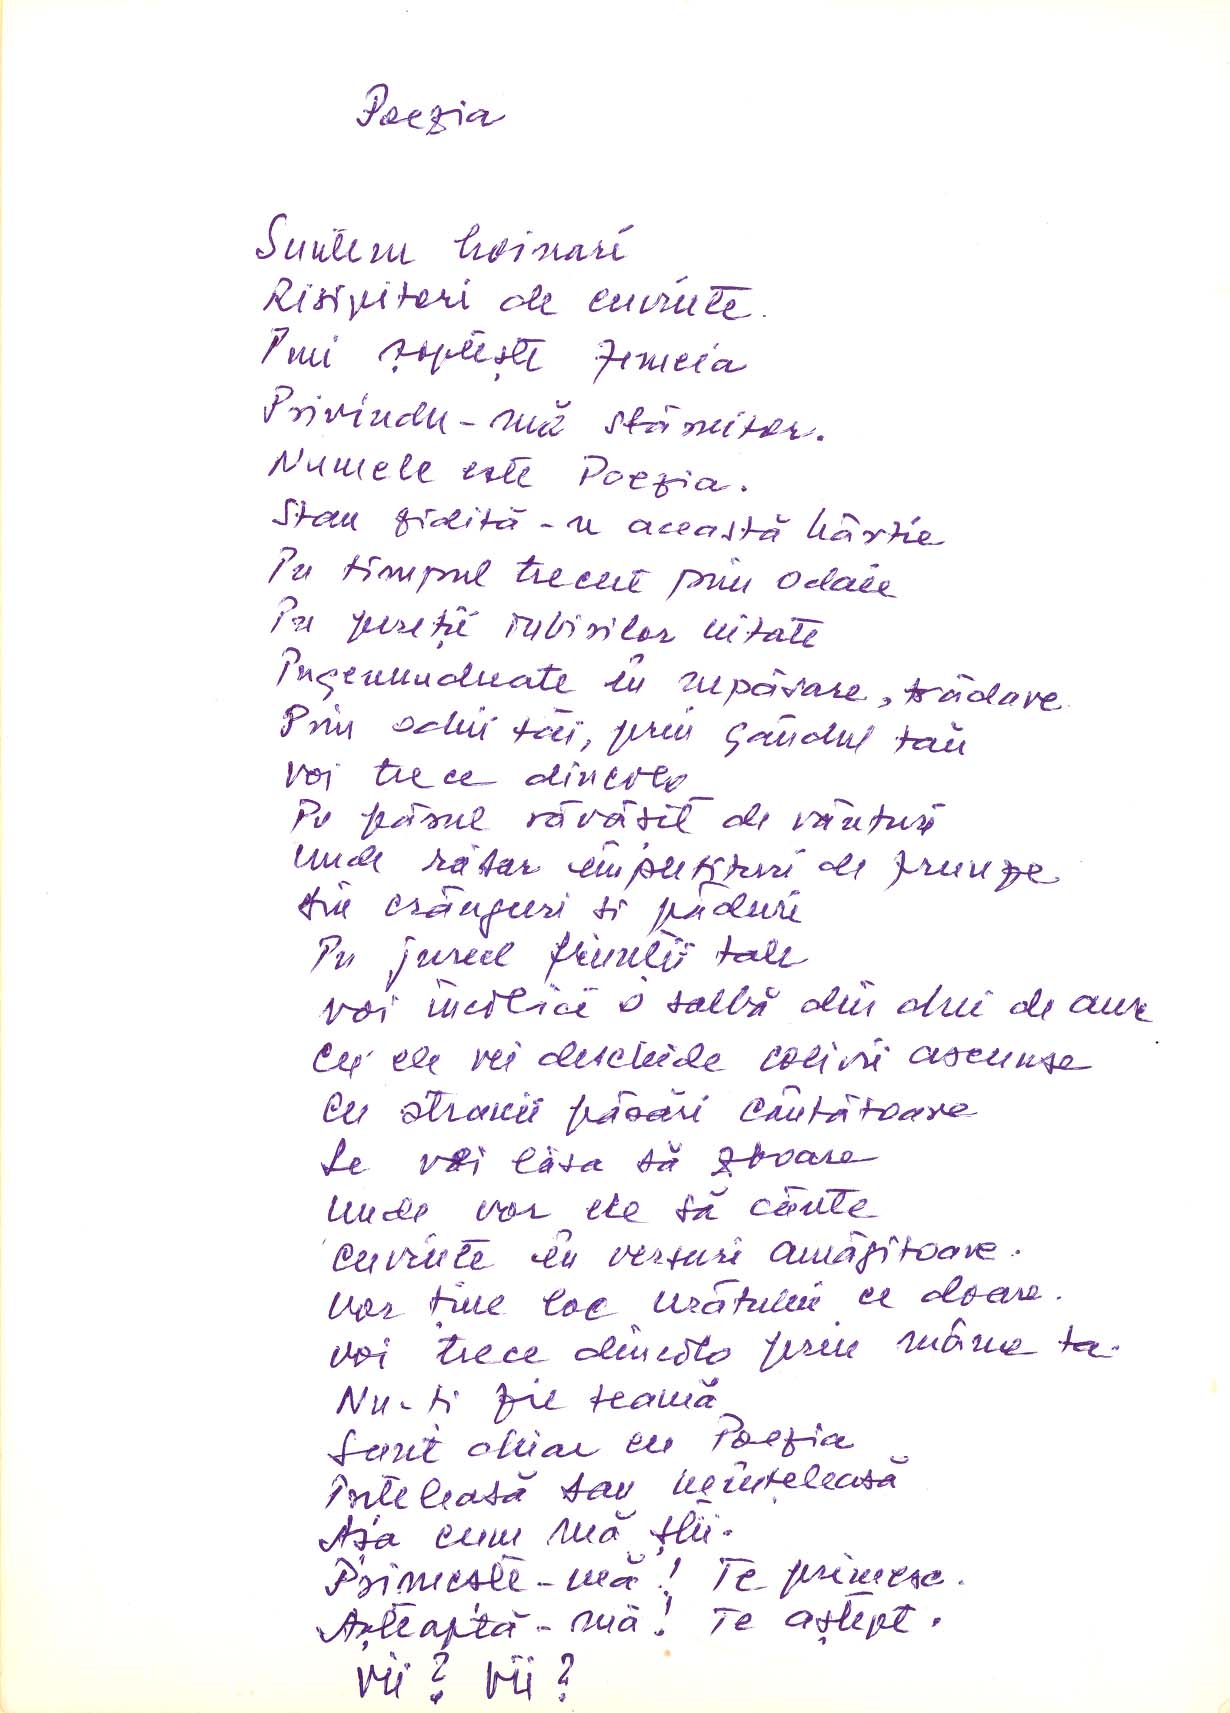 Poezia
Suntem hoinari
Risipitori de cuvinte.
Îmi șoptește femeia
Privindu-mă stăruitor.
Numele este Poezia.
Stau zidită-n această hârtie
În timpul trecut prin odaie
În pereții iubirilor uitate
Îngenuncheate în nepăsare, trădare
Prin ochii tăi, prin gândul tău
Voi trece dincolo
În părul răvășit de vânturi
Unde răsar împletituri de frunze
Din crânguri și păduri
În jurul frunții tale
Voi încolăci o salbă din chei de aur
Cu ele vei deschide colivii ascunse
Cu stranii păsări cântătoare
Le vei lăsa să zboare
Unde vor ele să cânte
Cuvinte în versuri amăgitoare.
Vor ține loc urâtului ce doare.
Voi trece dincolo prin mâna ta.
Nu-ți fie teamă
Sunt chiar eu Poezia
Înțeleasă sau neînțeleasă
Așa cum mă știi.
Primește-mă! Te primesc.
Așteaptă-mă! Te aștept.
Vii? Vii?